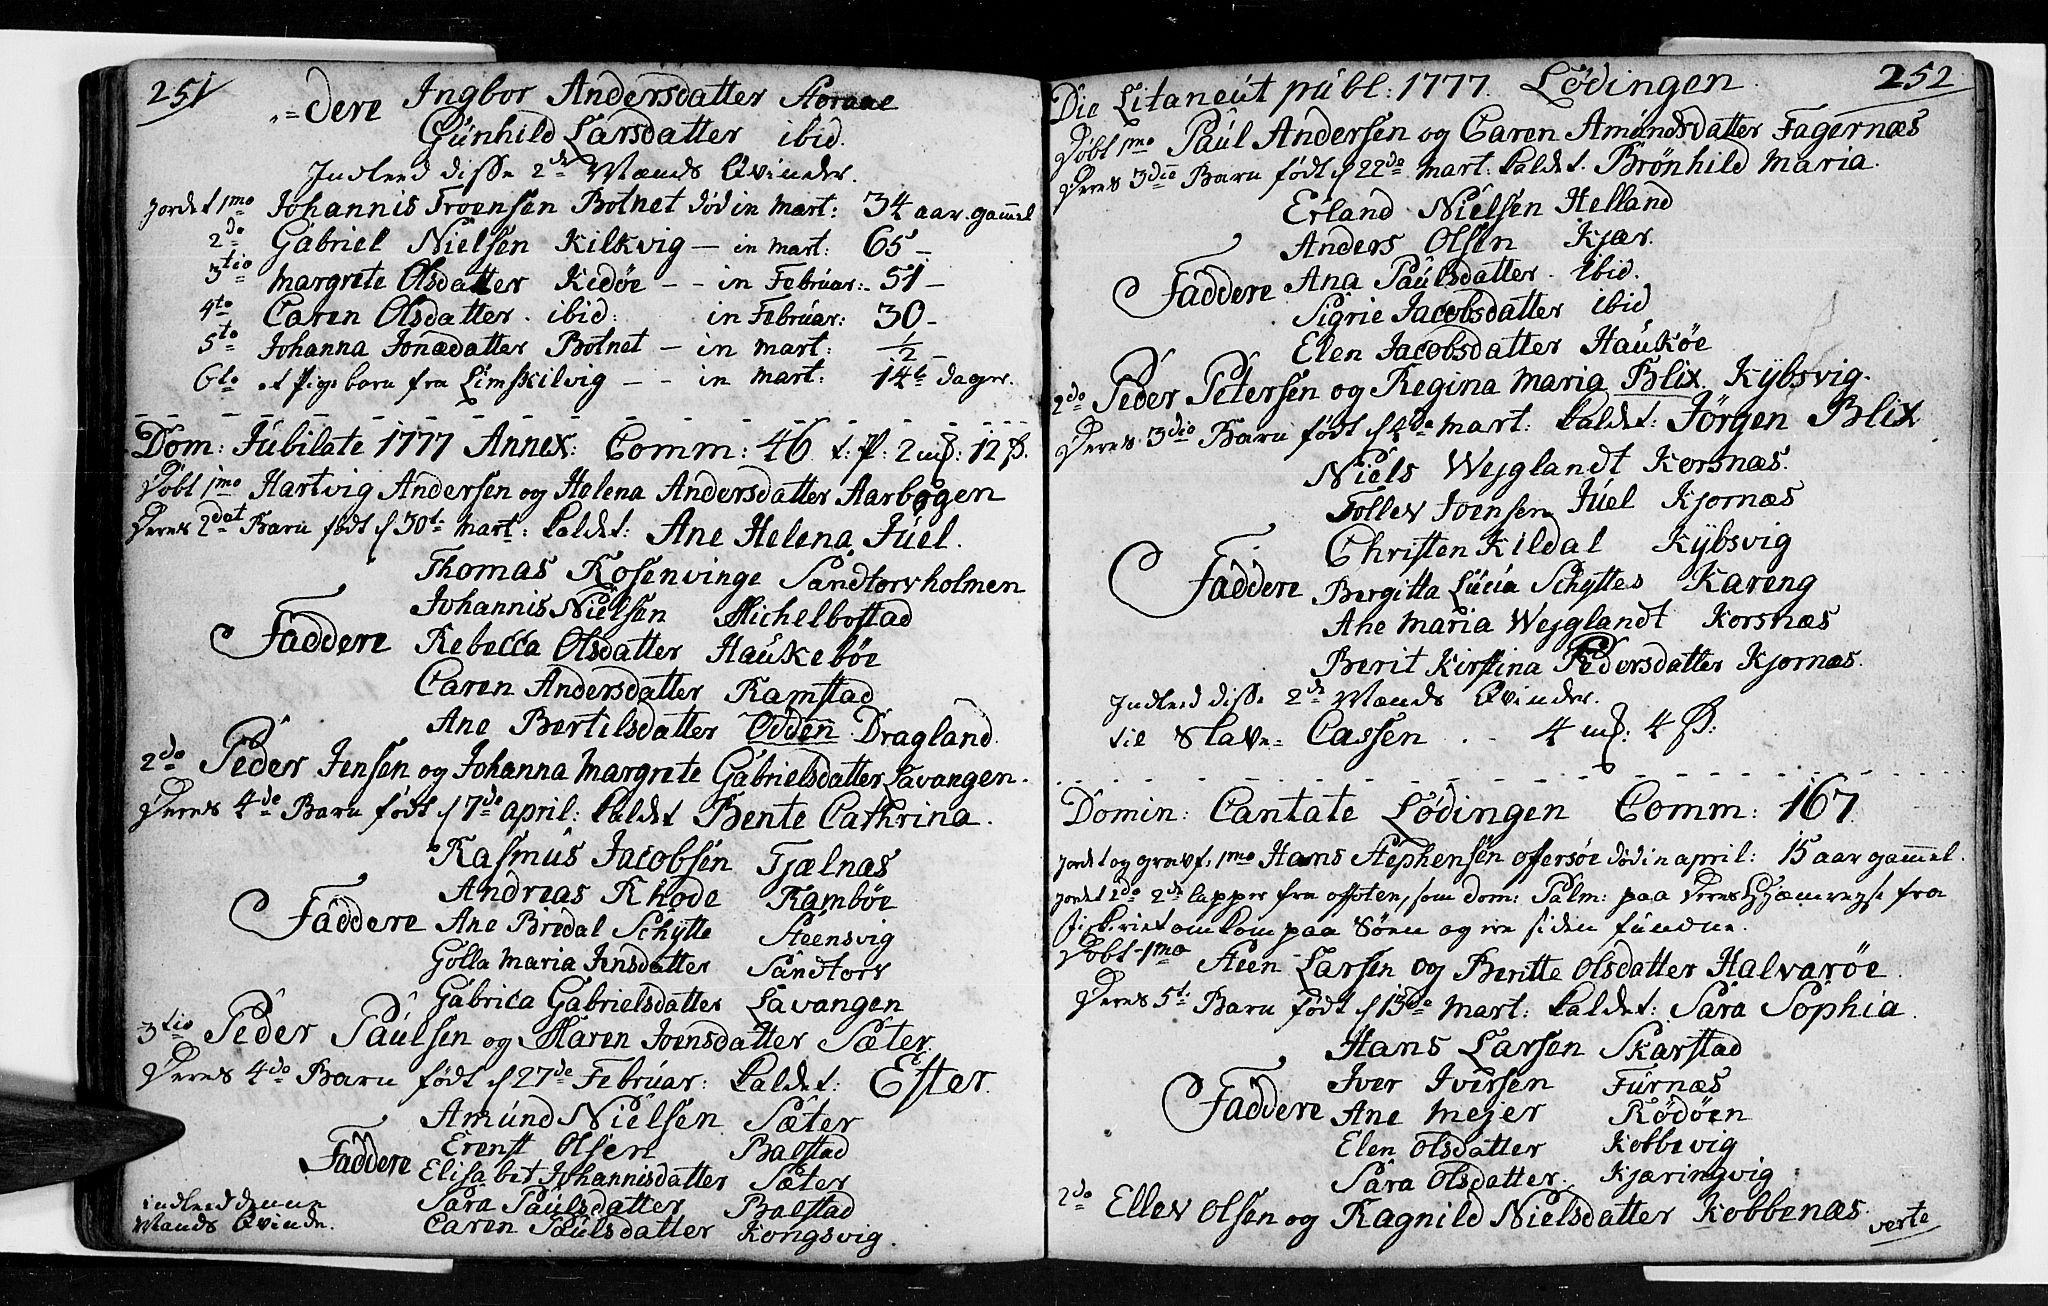 251
„=dere Ingbor Andersdatter Storaae
Gúnhild Larsdatter ibid.
Indleed disse 2de Mænds Qvinder.
Jordet 1mo Johannis Troensen Botnet død in Mart: 34 aar gamel
2do Gabriel Nielsen Kilkvig – in Mart: 65 –
3tio Margrete Olsdatter Kidöe – – in Febrúar: 51 –
4to Caren Olsdatter ibid: in Febrúar: 30 –
5to Johanna Jonædatter Botnet – in Mart: 1/2 –
6to et Pigebarn fra Limskilvig – – in Mart: 14t dager.
Dom: Jubilate 1777 Annex: Comm: 46 t: Pl: 2 mſ: 12 ß.
Döbt 1mo Hartvig Andersen og Helena Andersdatter Aarbogen
Deres 2det Barn födt d 30te Mart: kaldet: Ane Helena Júel.
Thomas Rosenvinge Sandtorvholmen
Johannis Nielsen Michelbostad
Faddere Rebecca Olsdatter Haúkebóe
Caren Andersdatter Ramstad
Ane Bertilsdatter Odden Dragland
2do Peder Jensen og Johanna Margrete Gabrielsdatter Lavangen.
Deres 4de Barn födt d 7de april: kaldet Bente Cathrina.
Rasmús Jacobsen Tjælnæs
Andreas Rhode Rambøe
Faddere Ane Bredal Schytte Steensvig
Golla Maria Jensdatter Sandtorv
Gabrica Gabrielsdatter Lavangen
3tio Peder Paúlsen og Maren Joensdatter Sæter.
Deres 4de Barn födt d 27de Febrúar: kaldet: Ester.
Amúnd Nielsen Sæter
Erenst Olsen Balstad
Faddere Elisabet Johannisdatter Sæter
indleed denne Sara Paúlsdatter Balstad
Mands Qvinde. Caren Paúlsdatter Kongsvig.
252
Die Litaneút públ: 1777. Lödingen.
Döbt 1mo Paúl Andersen og Caren Amúndsdatter Fagernæs
Deres 3die Barn födt d 22de Mart: kaldet. Brönhild Maria.
Erland Nielsen Helland
Anders Olsen Kjær.
Faddere Ana Paúlsdatter ibid.
Sigrie Jacobsdatter ibid
Elen Jacobsdatter Haúköe
2do Peder Petersen og Regina Maria Blix Kybsvig.
Deres 3die Barn födt d 4de Mart: kaldet: Jörgen Blix
Niels Wejglandt Korsnæs.
Tollev Joensen Júel Kjornæs
Christen Kildal Kybsvig
Faddere Bergitta Lúcia Schyttes Kareng
Ane Maria Wejglandt Korsnæs
Berit Kirstina Pedersdatter Kjornæs.
Indleed disse 2de Mænds Qvinder.
til Slave= Cassen . . 4 mſ: 4 ß:
Domin: Cantate Lödingen Comm: 167
Jordet og gravf: 1mo Hans Stephensen offersöe död in april: 15 aar gammel.
Jordet 2do 2de lapper fra ofsten, som dom: Palm: paa deres Hjemrejse fra
fiskeriet omkom paa Söen og ere siden fúndne.
Döbt 1mo Steen Larsen og Beritte Olsdatter Halvaröe.
Deres 5te Barn födt d 13de Mart: kaldet: Sara Sophia.
Hans Larsen Skarstad
Iver Iversen Fúrnæs
Faddere Ane Mejer Rödöen
Elen Olsdatter Kobbevig
Sara Olsdatter. Kjæringvig
2do Ellev Olsen og Ragnild Nielsdatter Kobbenæs.
verte